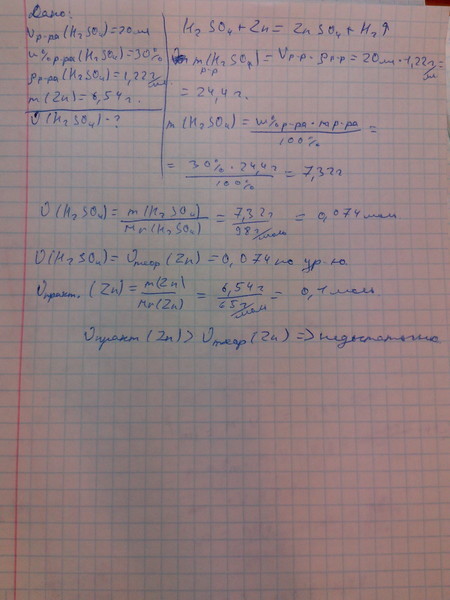 Дано:
Vр-ра(H₂SO₄)=20мл
ω%р-ра(H₂SO₄)=30%
ρр-ра(H₂SO₄)=1,22г/мл
m(Zn)=6,54г.
υ(H₂SO₄)-?
H₂SO₄+Zn=ZnSO₄+H₂↑
m р-р (H₂SO₄)=Vр-р·ρр-р=20мл·1,22г/мл=
=24,4г.
m(H₂SO₄)=ω%р-ра·mр-ра/100%=
=30%·24,4г/100%=7,32г
υ(H₂SO₄)=m(H₂SO₄)/Mr(H₂SO₄)=7,32г/98г/моль=0,074моль
υ(H₂SO₄)=υтеор(Zn)=0,074 по ур-ю
υпракт.(Zn)=m(Zn)/Mr(Zn)=6,54г/65г/моль=0,1моль
υпракт(Zn)>υтеор(Zn)=>недостаточно